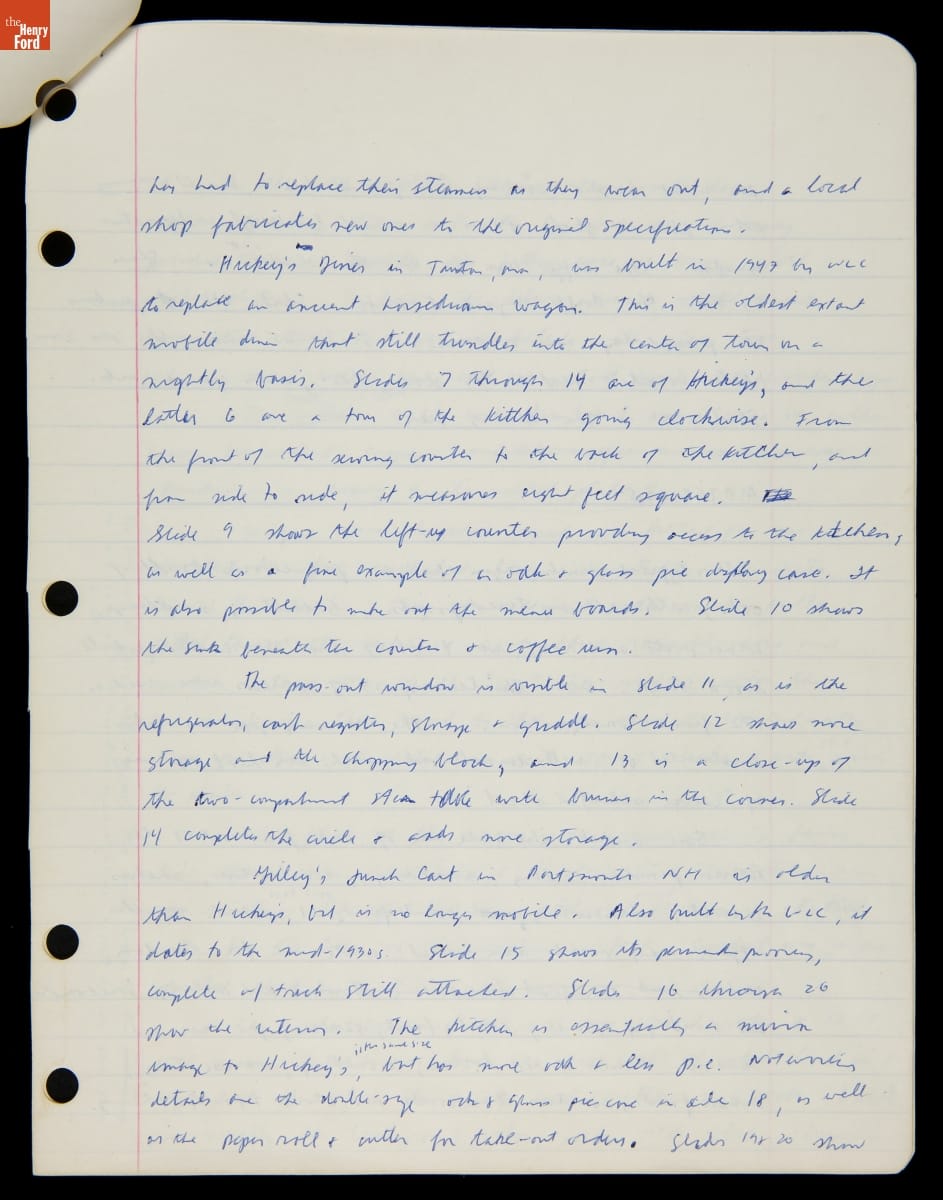 the Henry Ford
has had to replace their steamers as they wear out, and a local
shop fabricates new ones to the original specifications.
Hickey's Diner in Taunton, was built in 1947 by WLC
to replace an ancient horsedrawn wagon. This is the oldest extant
mobile diner that still trundles into the center of town on a
nightly basis. Slides 7 through 14 are of Hickey's, and the
latter 6 are a tour of the kitchen going clockwise. From
the front of the serving counter to the back of the kitchen, and
from side to side, it measures eight feet square.
Slide 9 shows the lift-up counter providing access to the kitchen,
as well as a fine example of an oak & glass pie display case. It
is also possible to make out the menu boards. Slide 10 shows
the sink beneath the counter & coffee urn.
The pass-out window is visible in slide 11, as is the
refrigerator, cash register, storage & griddle. Slide 12 shows more
storage and the chopping block, and 13 is a close-up of
the two-compartment steam table with burners in the corner. Slide
14 completes the circle & adds more storage.
Gilley's Lunch Cart in Portsmouth NH is older
than Hickey's, but is no longer mobile. Also built by the WLC, it
dates to the mid-1930s. Slide 15 shows its permanent mooring,
complete w/ truck still attached. Slides 16 through 20
show the interior. The kitchen is essentially a mirror
image to Hickey's, is the same size but has more oak & less p.e. Noteworthy
details are the double-size oak & glass pie case in slide 18, as well
as the paper roll & cutter for take-out orders. Slides 19 & 20 show